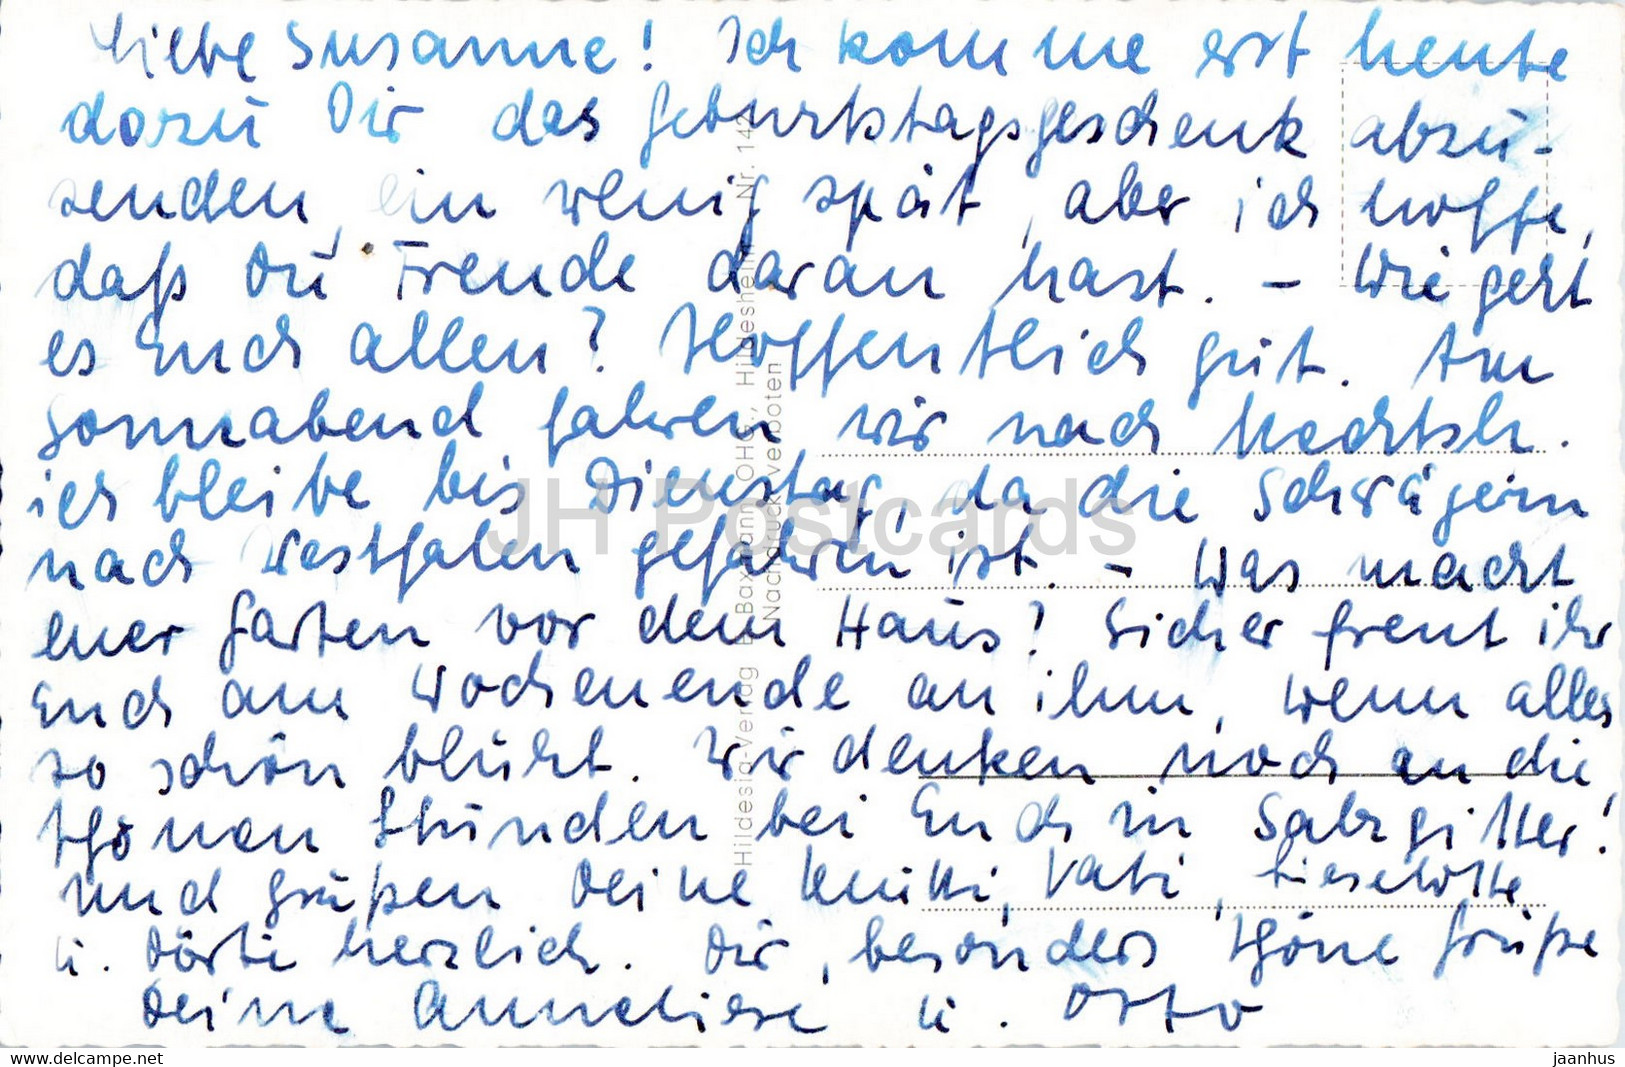 Liebe Susanne! Ich komme erst heute
dazu Dir das Geburtstagsgeschenk abzu-
senden, ein wenig spät, aber ich hoffe,
daß Du Freude daran hast. – Wie geht
es Euch allen? Hoffentlich gut. Am
Sonnabend fahren wir nach
ich bleibe bis Dienstag, da die Schwägerin
nach Westfalen gefahren ist. – Was macht
euer Garten vor dem Haus? Sicher freut ihr
Euch am Wochenende an ihm, wenn alles
so schön blüht. Wir denken noch an die
schönen Stunden bei Euch in Salzgitter!
Und grüßen Deine Mutti, Vati, Lieselotte
u. Dörte herzlich. Dir, besonders schöne Grüße
Deine Anneliese u. Otto
Hildesia-Verlag B. Baxmann OHG., Hildesheim Nr. 142
Nachdruck verboten
JH Postcards
https://www.delcampe.net
jaanhus